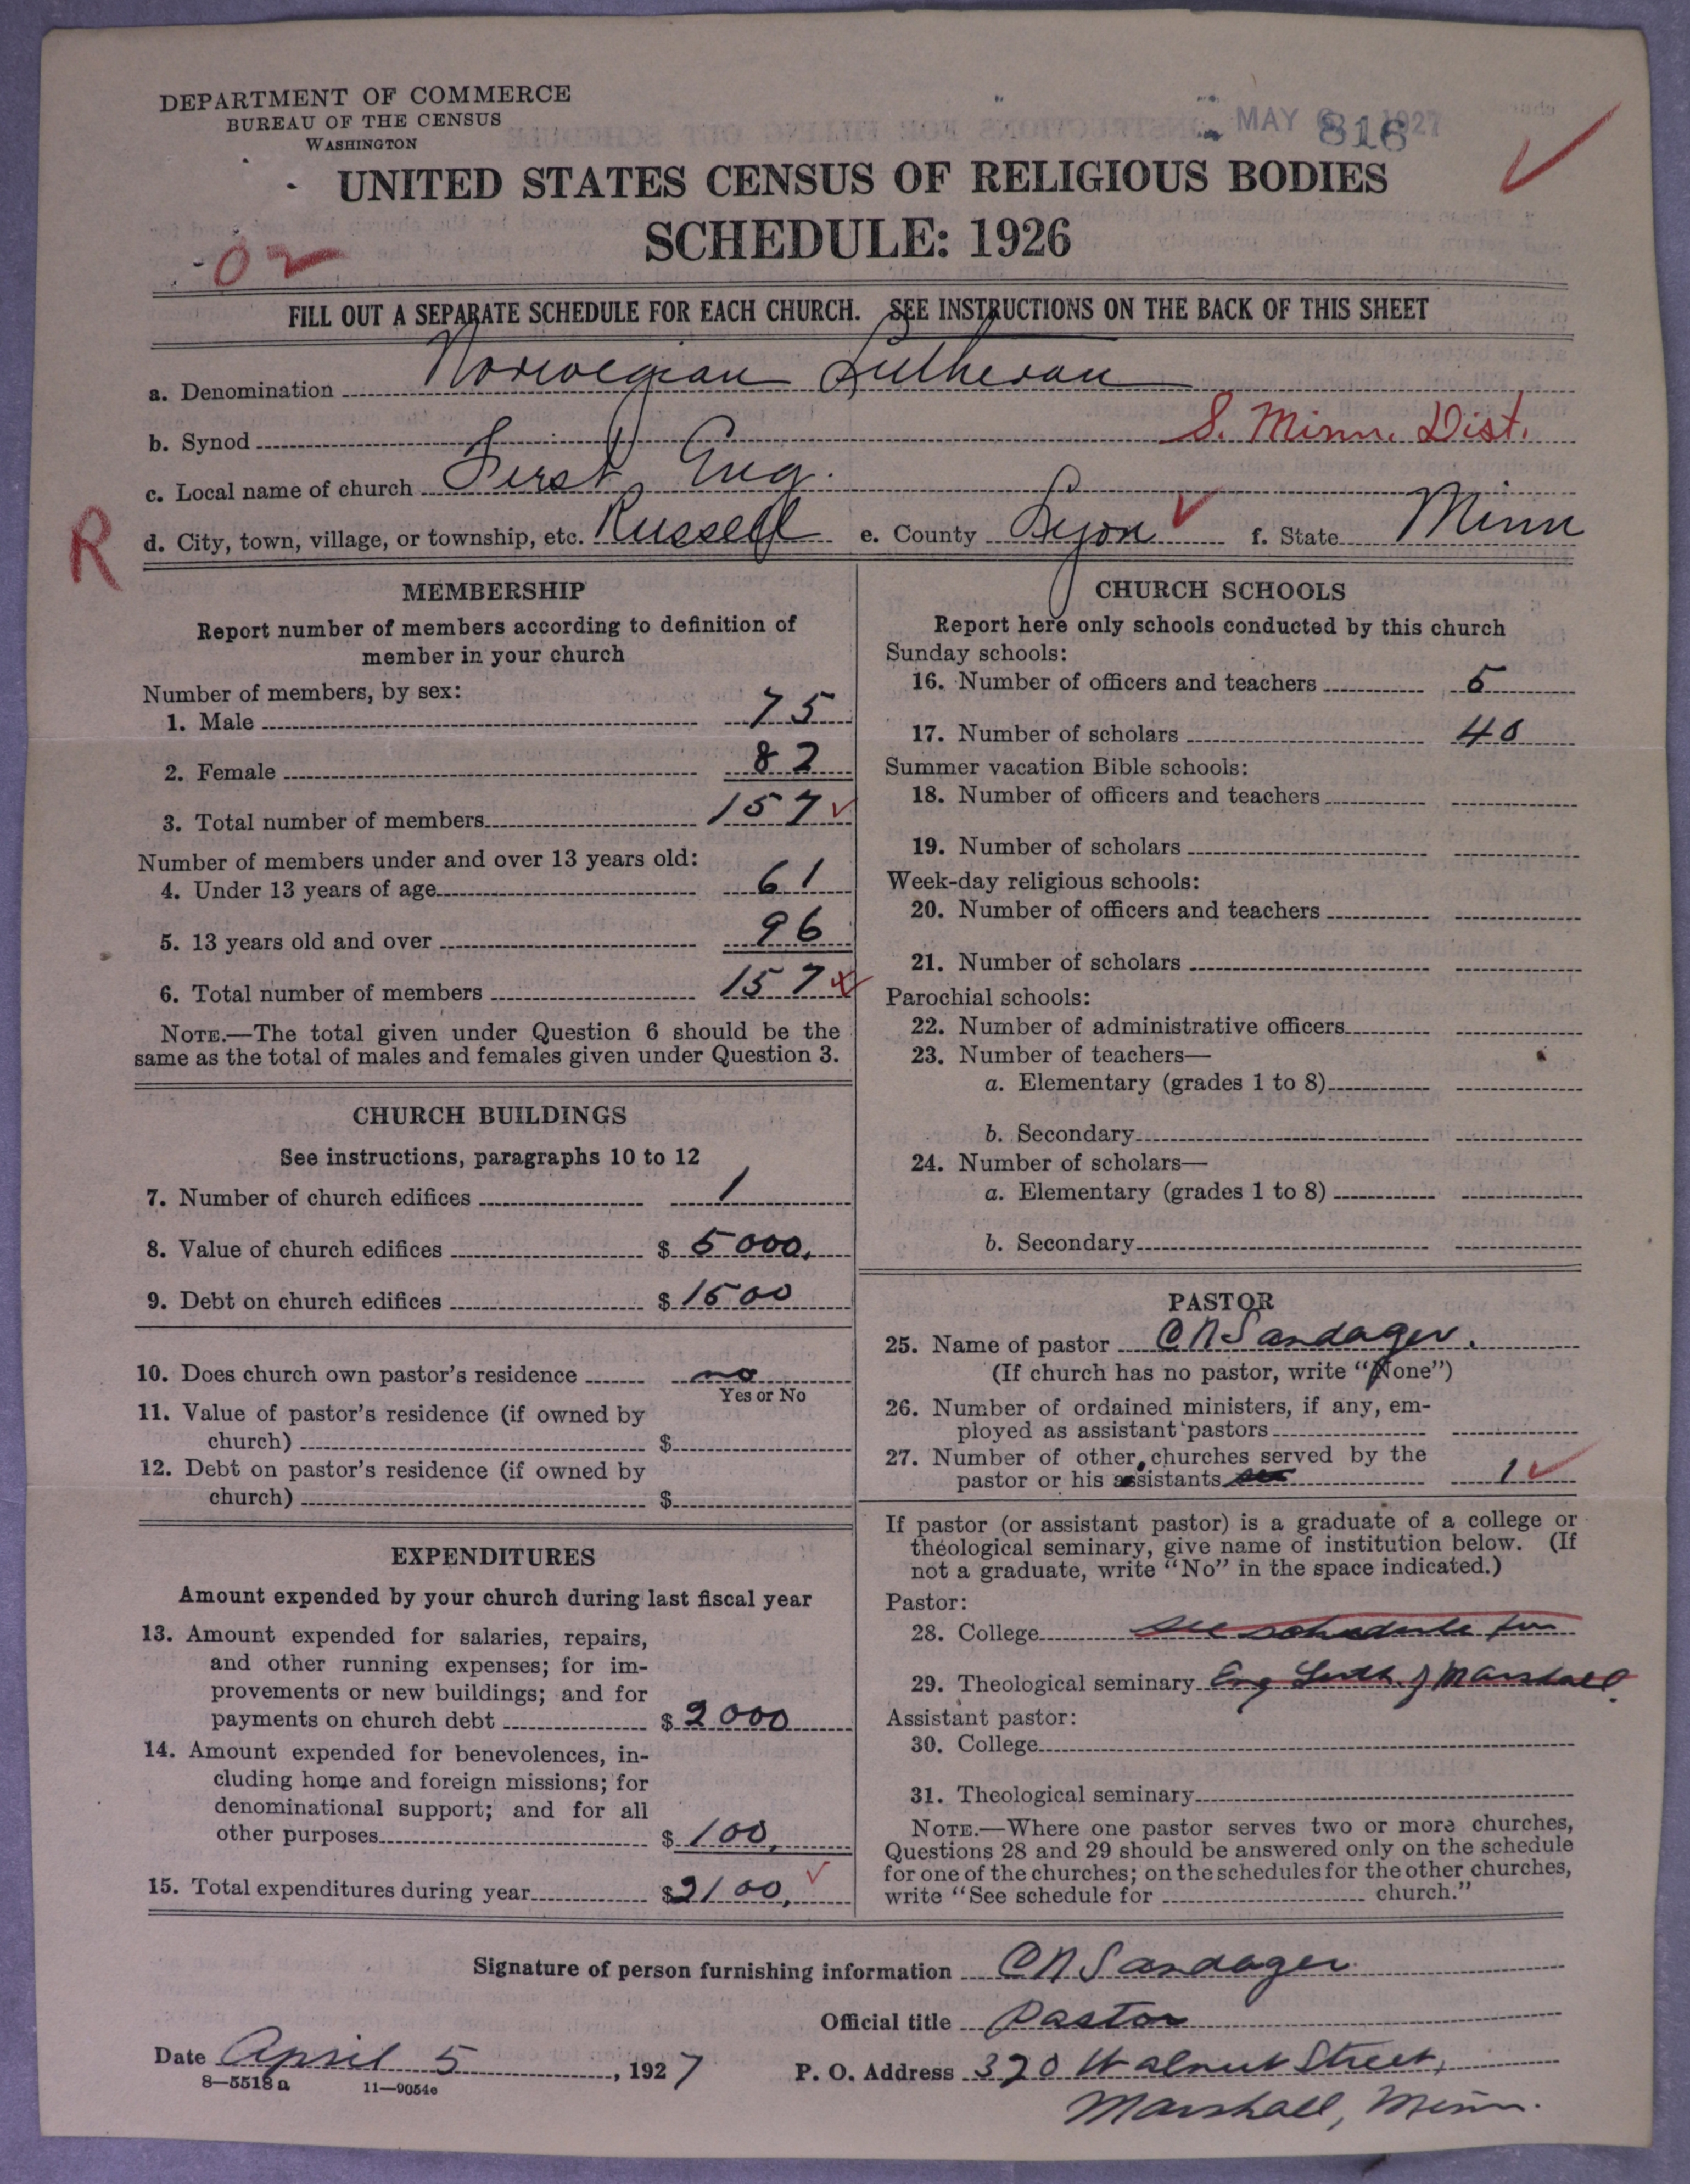 DEPARTMENT OF COMMERCE
BUREAU OF THE CENSUS
WASHINGTON
MAY 1927
816
UNITED STATES CENSUS OF RELIGIOUS BODIES
SCHEDULE: 1926
02
FILL OUT A SEPARATE SCHEDULE FOR EACH CHURCH. SEE INSTRUCTIONS ON THE BACK OF THIS SHEET
a. Denomination Norwegian Lutheran
b. Synod S. Minn. Dist.
c. Local name of church First Eng.
R
d. City, town, village, or township, etc. Russell e. County Lyon f. State Minn
MEMBERSHIP
Report number of members according to definition of
member in your church
Number of members, by sex:
1. Male 75
2. Female 82
3. Total number of members 157
Number of members under and over 13 years old:
4. Under 13 years of age 61
5. 13 years old and over 96
6. Total number of members 157
NOTE.—The total given under Question 6 should be the
same as the total of males and females given under Question 3.
CHURCH BUILDINGS
See instructions, paragraphs 10 to 12
7. Number of church edifices 1
8. Value of church edifices $ 5000.
9. Debt on church edifices $ 1500
10. Does church own pastor's residence no
Yes or No
11. Value of pastor's residence (if owned by
church) $
12. Debt on pastor's residence (if owned by
church) $
EXPENDITURES
Amount expended by your church during last fiscal year
13. Amount expended for salaries, repairs,
and other running expenses; for im-
provements or new buildings; and for
payments on church debt $ 2000
14. Amount expended for benevolences, in-
cluding home and foreign missions; for
denominational support; and for all
other purposes $ 100.
15. Total expenditures during year $ 2100.
CHURCH SCHOOLS
Report here only schools conducted by this church
Sunday schools:
16. Number of officers and teachers 5
17. Number of scholars 40
Summer vacation Bible schools:
18. Number of officers and teachers
19. Number of scholars
Week-day religious schools:
20. Number of officers and teachers
21. Number of scholars
Parochial schools:
22. Number of administrative officers
23. Number of teachers—
a. Elementary (grades 1 to 8)
b. Secondary
24. Number of scholars—
a. Elementary (grades 1 to 8)
b. Secondary
PASTOR
25. Name of pastor C N Sandager.
(If church has no pastor, write "None")
26. Number of ordained ministers, if any, em-
ployed as assistant pastors
27. Number of other churches served by the
pastor or his assistants 1
If pastor (or assistant pastor) is a graduate of a college or
theological seminary, give name of institution below. (If
not a graduate, write "No" in the space indicated.)
Pastor:
28. College see schedule for
29. Theological seminary Eng Luth. of Marshall.
Assistant pastor:
30. College
31. Theological seminary
NOTE.—Where one pastor serves two or more churches,
Questions 28 and 29 should be answered only on the schedule
for one of the churches; on the schedules for the other churches,
write "See schedule for church."
Signature of person furnishing information C N Sandager
Official title Pastor
Date April 5, 1927 P. O. Address 320 Walnut Street,
8—5518a 11—9054c
Marshall, Minn.